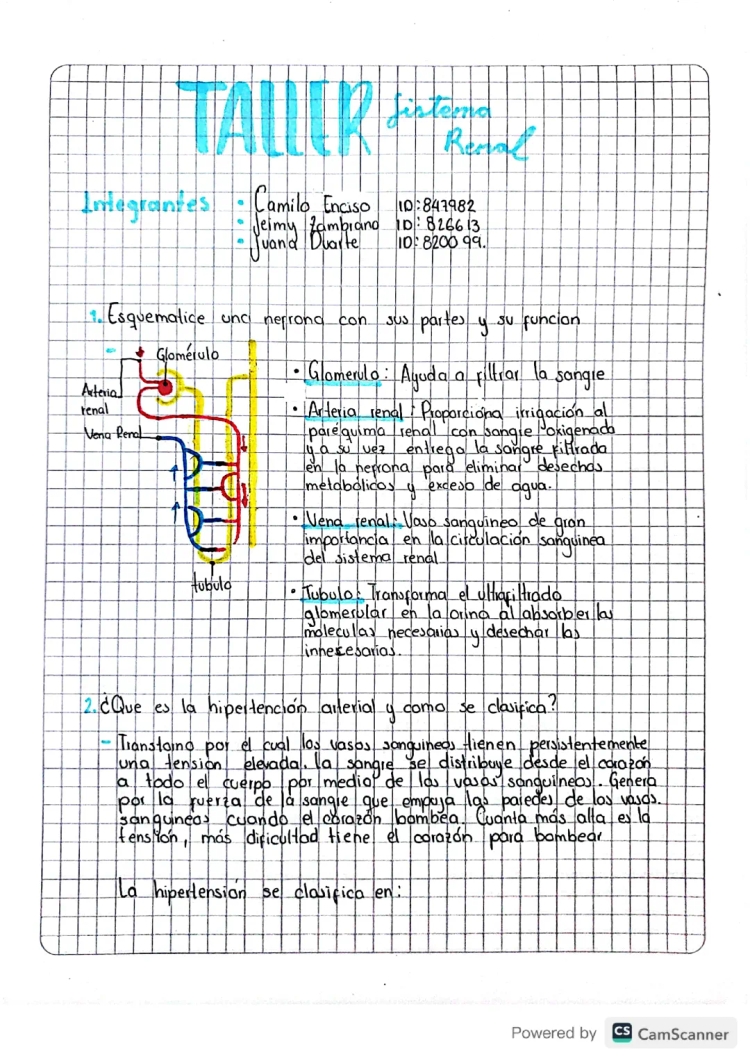 TALLER Sistema
Renal
Integrantes : • Camilo Enciso ID:847982
• Jeimy Zambrano ID: 826613
• Juana Duarte ID: 820099.
1. Esquematice una nefrona con sus partes y su funcion
- Glomérulo
Arteria
renal
Vena Renal
tubulo
• Glomerulo: Ayuda a filtrar la sangre
• Arteria renal: Proporciona irrigación al
paréquima renal con sangre oxigenada
y a su vez entrega la sangre filtrada
en la nefrona para eliminar desechos
metabólicos y exceso de agua.
• Vena renal: Vaso sanguineo de gran
importancia en la circulación sanguinea
del sistema renal
• Tubulo: Transforma el ultrafiltrado
glomerular en la orina al absorber las
moleculas necesarias y desechar las
innecesarias.
2. ¿Que es la hipertención arterial y como se clasifica?
- Transtorno por el cual los vasos sanguineos tienen persistentemente
una tension elevada. la sangre se distribuye desde el corazón
a todo el cuerpo por medio de los vasos sanguineos. Genera
por la fuerza de la sangre que empuja las paredes de los vasos.
sanguineos cuando el corazón bombea. Cuanta más alta es la
tensión, más dificultad tiene el corazón para bombear
La hipertensión se clasifica en:
Powered by CS CamScanner